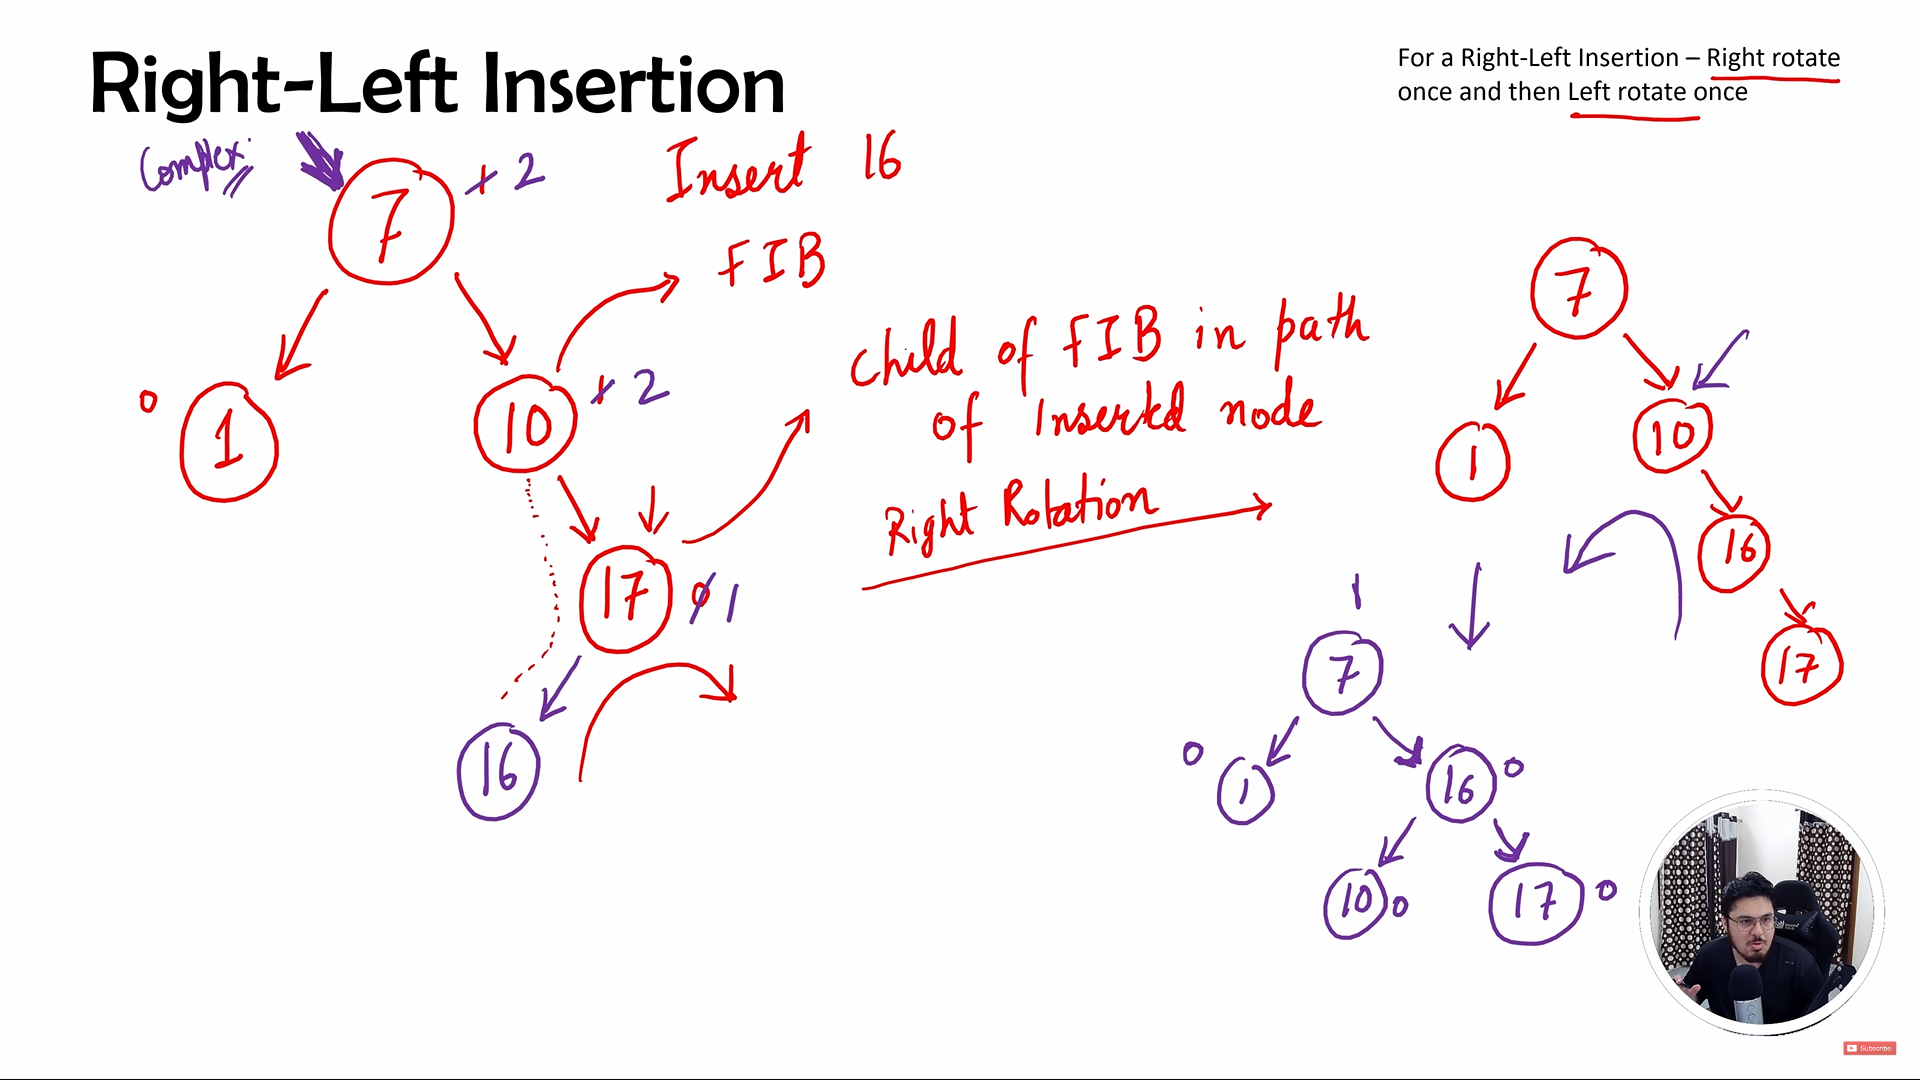 Right-Left Insertion
For a Right-Left Insertion – Right rotate
once and then Left rotate once
Complex
Insert 16
FIB
7 + 2
0 1
10 + 2
17 0 1
16
Child of FIB in path
of Inserted node
Right Rotation
7
1
10
16
17
1
7
0 1
16 0
10 0
17 0
Subscribe